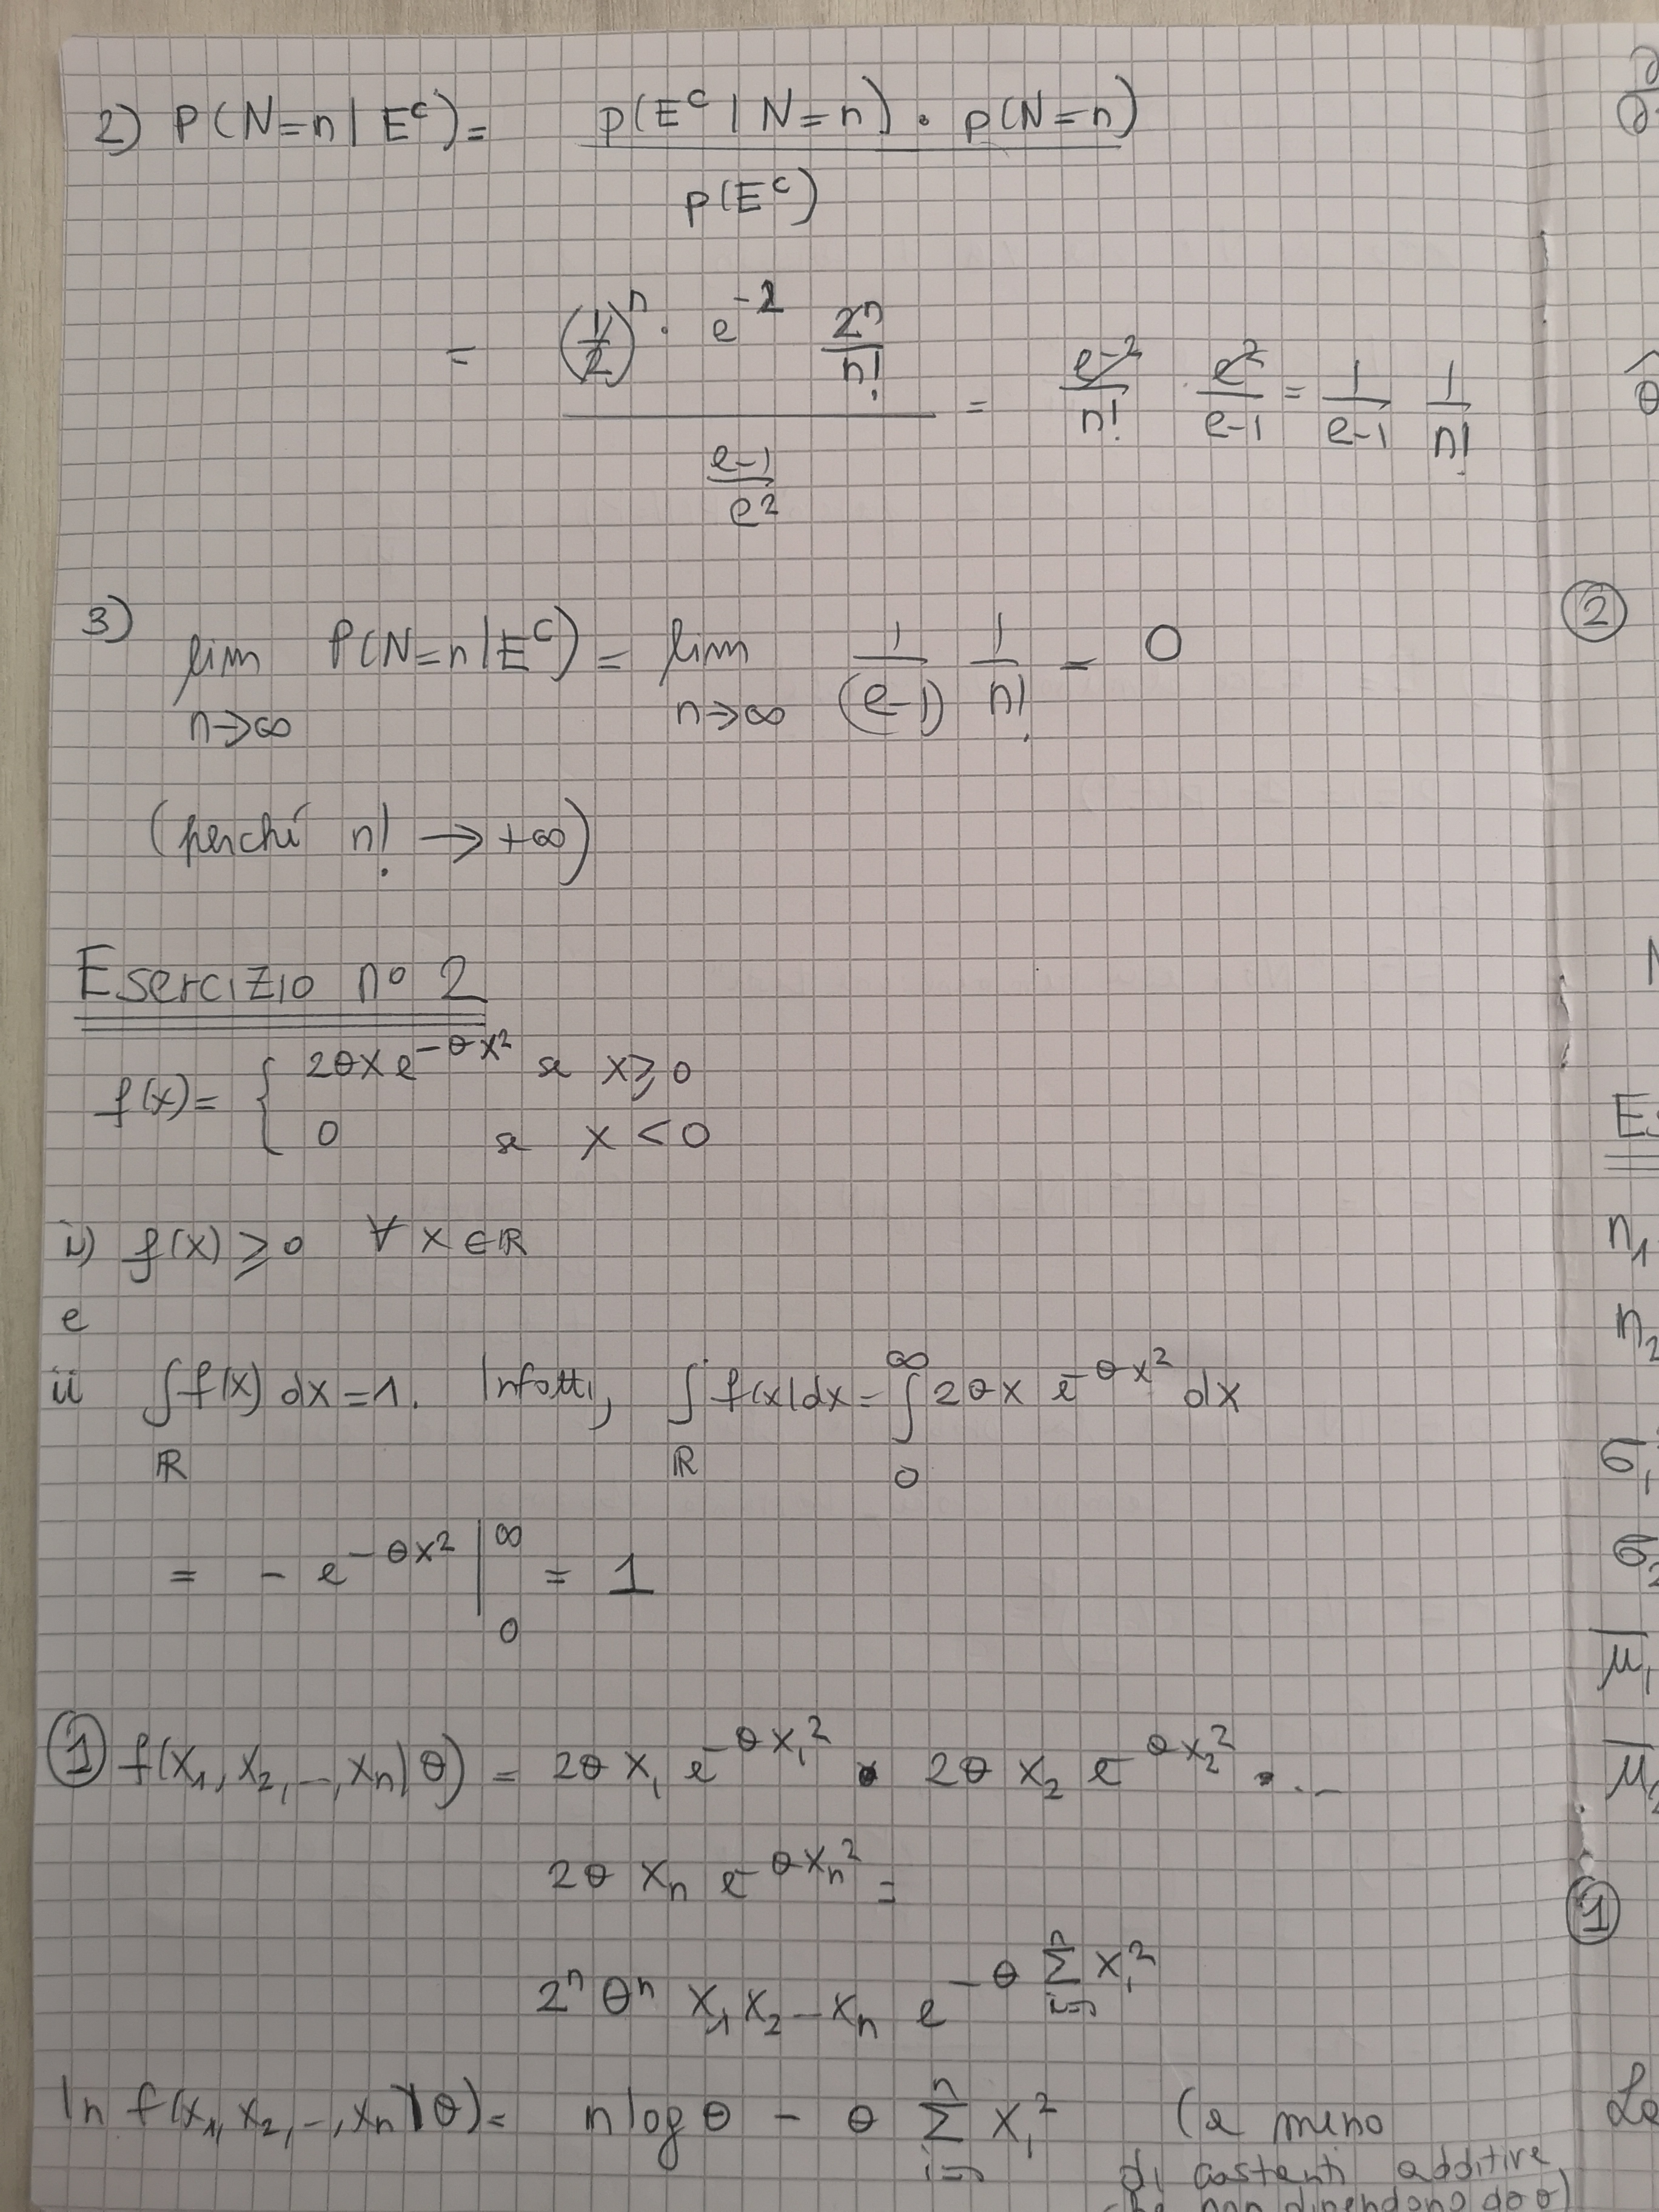 2) P(N=n | Eᶜ) = p(Eᶜ | N=n) · p(N=n) / p(Eᶜ)
= (1/2)ⁿ · e⁻² 2ⁿ/n! / (e-1)/e² = e⁻²/n! · e²/(e-1) = 1/(e-1) 1/n!
3) lim n→∞ P(N=n | Eᶜ) = lim n→∞ 1/(e-1) 1/n! = 0
(perché n! → +∞)
Esercizio n° 2
f(x) = { 2θx e^{-θx²} se x ≥ 0
0 se x < 0
i) f(x) ≥ 0 ∀ x ∈ ℝ
e
ii ∫_ℝ f(x) dx = 1. Infatti, ∫_ℝ f(x) dx = ∫_0^∞ 2θx e^{-θx²} dx
= - e^{-θx²} |_0^∞ = 1
① f(x₁, x₂, -, xₙ | θ) = 2θ x₁ e^{-θx₁²} · 2θ x₂ e^{-θx₂²} · ..
2θ xₙ e^{-θxₙ²} =
2ⁿ θⁿ x₁ x₂ - xₙ e^{-θ Σ_{i=1}^n xᵢ²}
ln f(x₁, x₂, -, xₙ | θ) = n log θ - θ Σ_{i=1}^n xᵢ² (a meno
di costanti additive
che non dipendono da θ)
②
Es
n₁
n₂
①